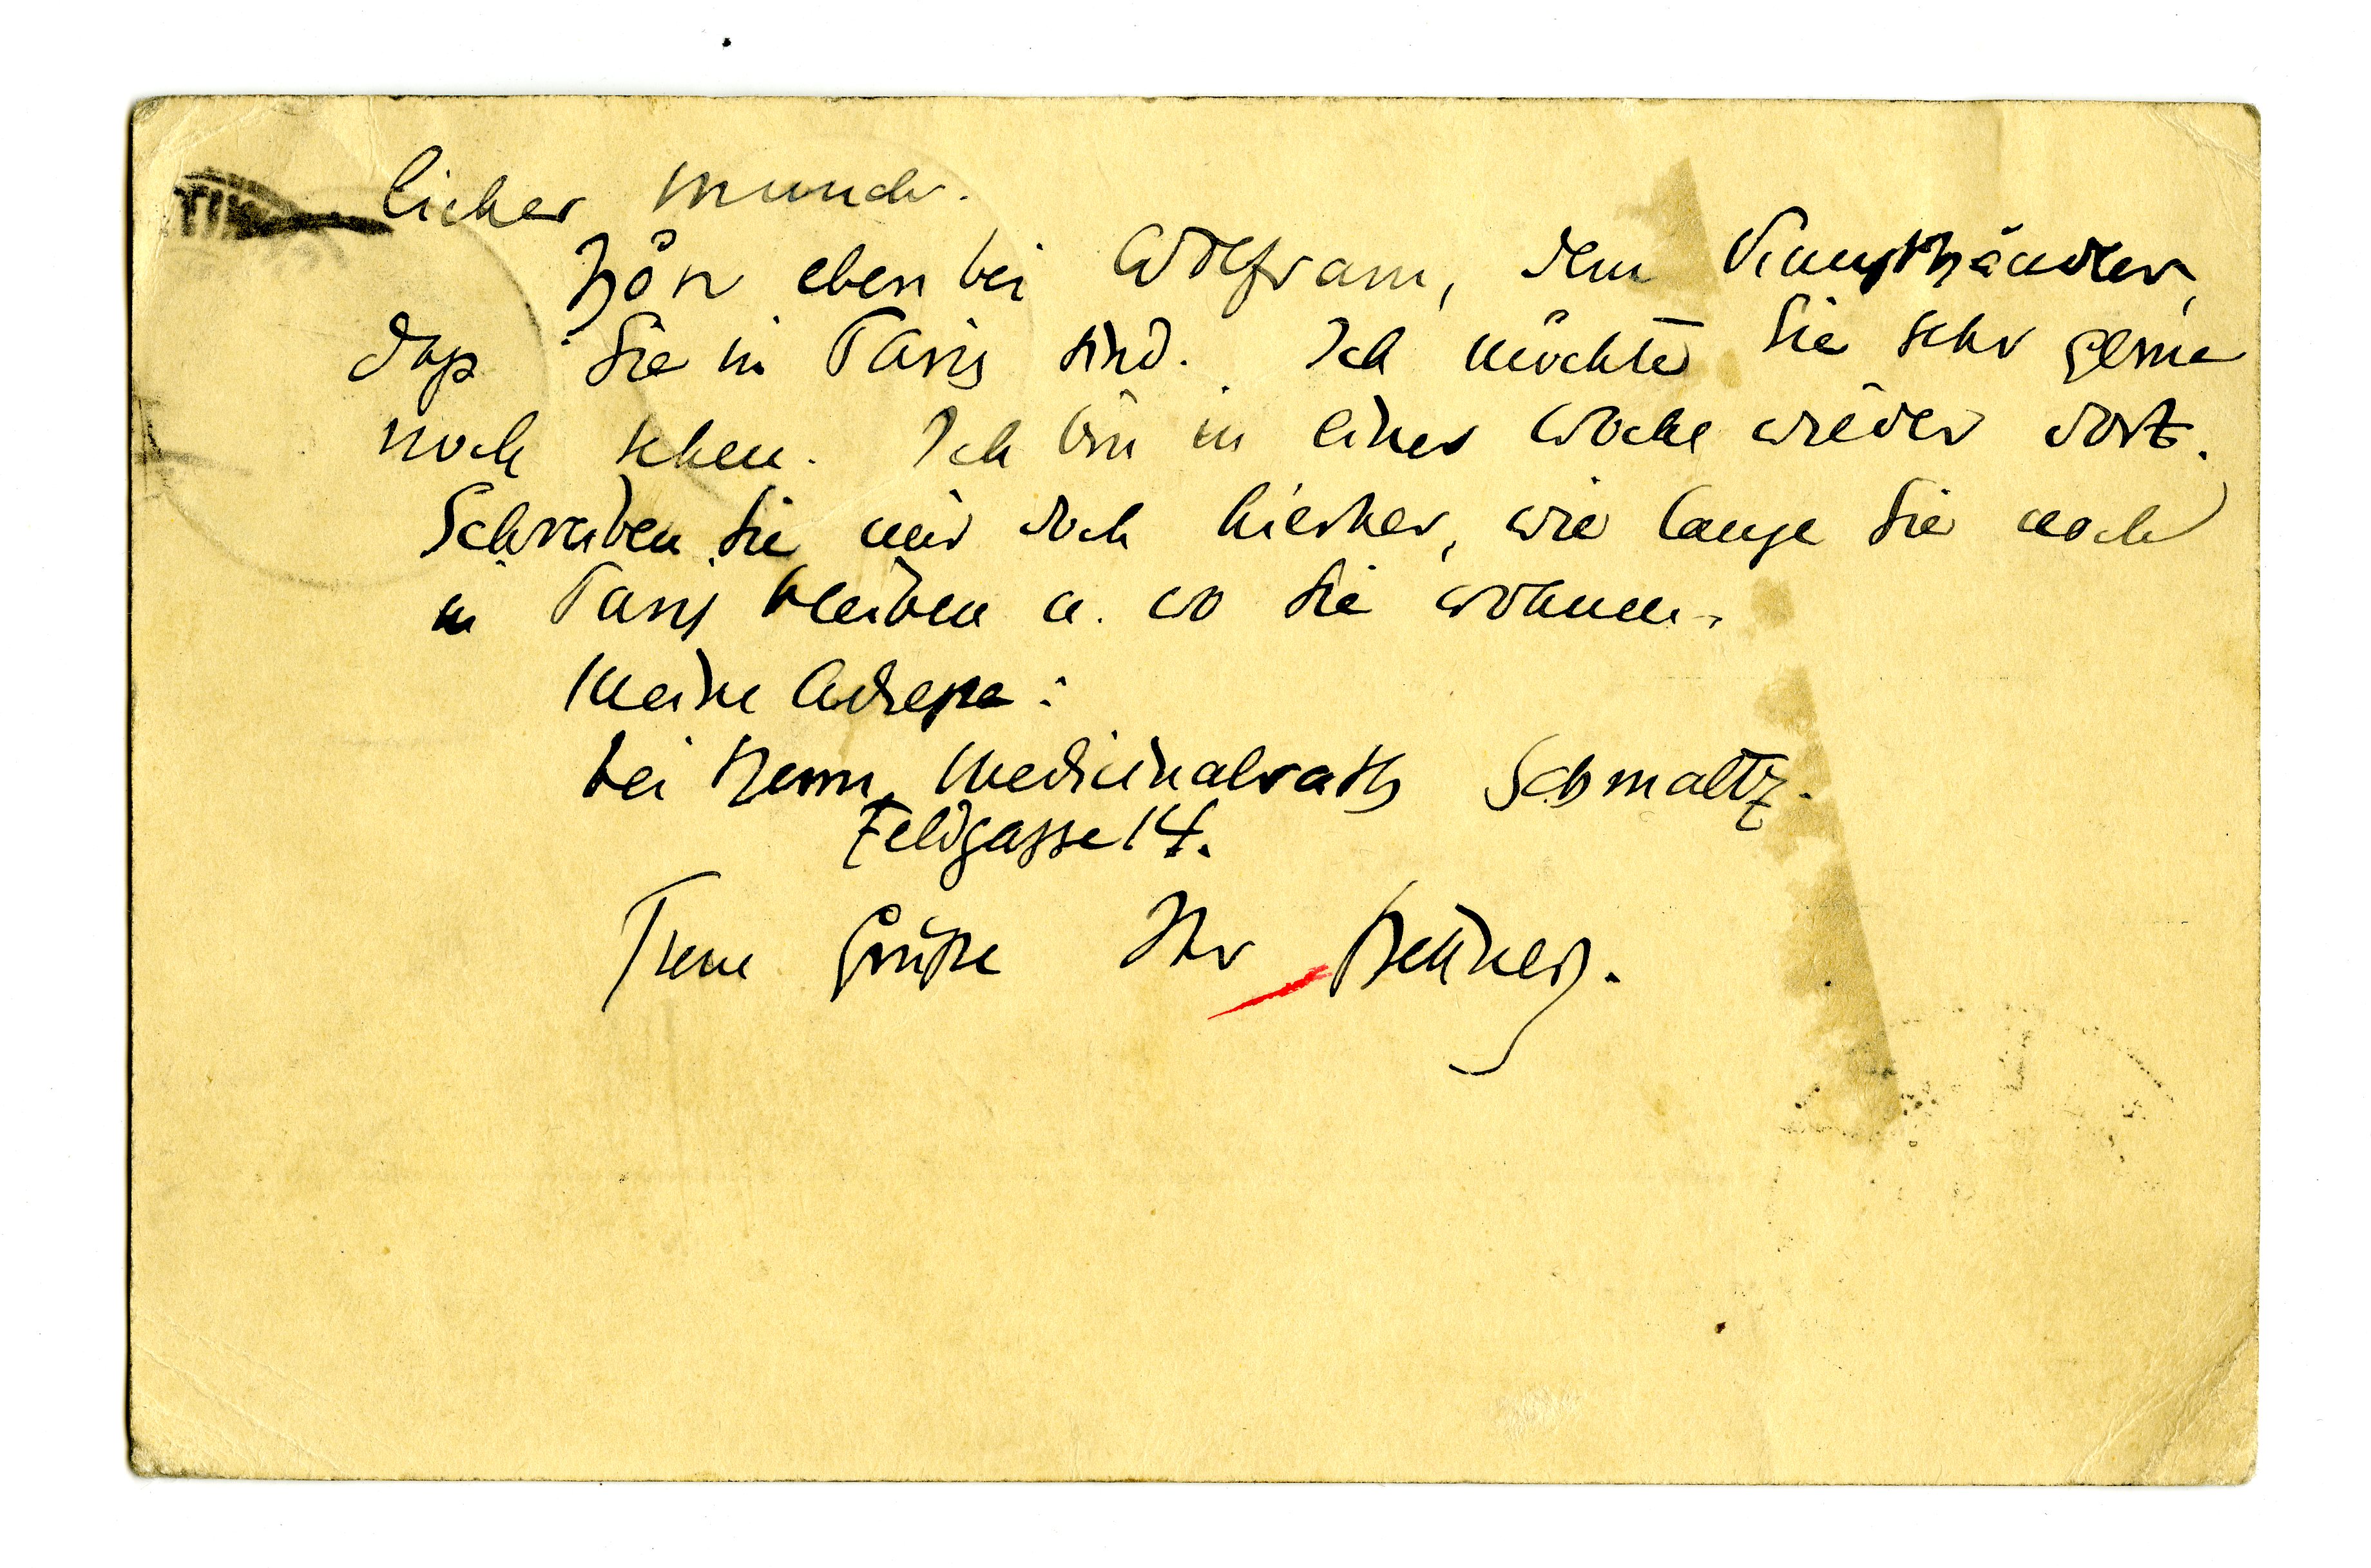 Lieber Munch.
Hör eben bei Wolfram, dem Kunsthändler,
daß Sie in Paris sind. Ich möchte Sie sehr gerne
noch sehen. Ich bin in einer Woche wieder dort.
Schreiben Sie mir doch hierher, wie lange Sie noch
in Paris bleiben u. wo Sie wohnen.
Meine Adresse:
bei Herrn Medicinalrath Schmaltz.
Feldgasse 14.
Treue Grüße Ihr Hettner.